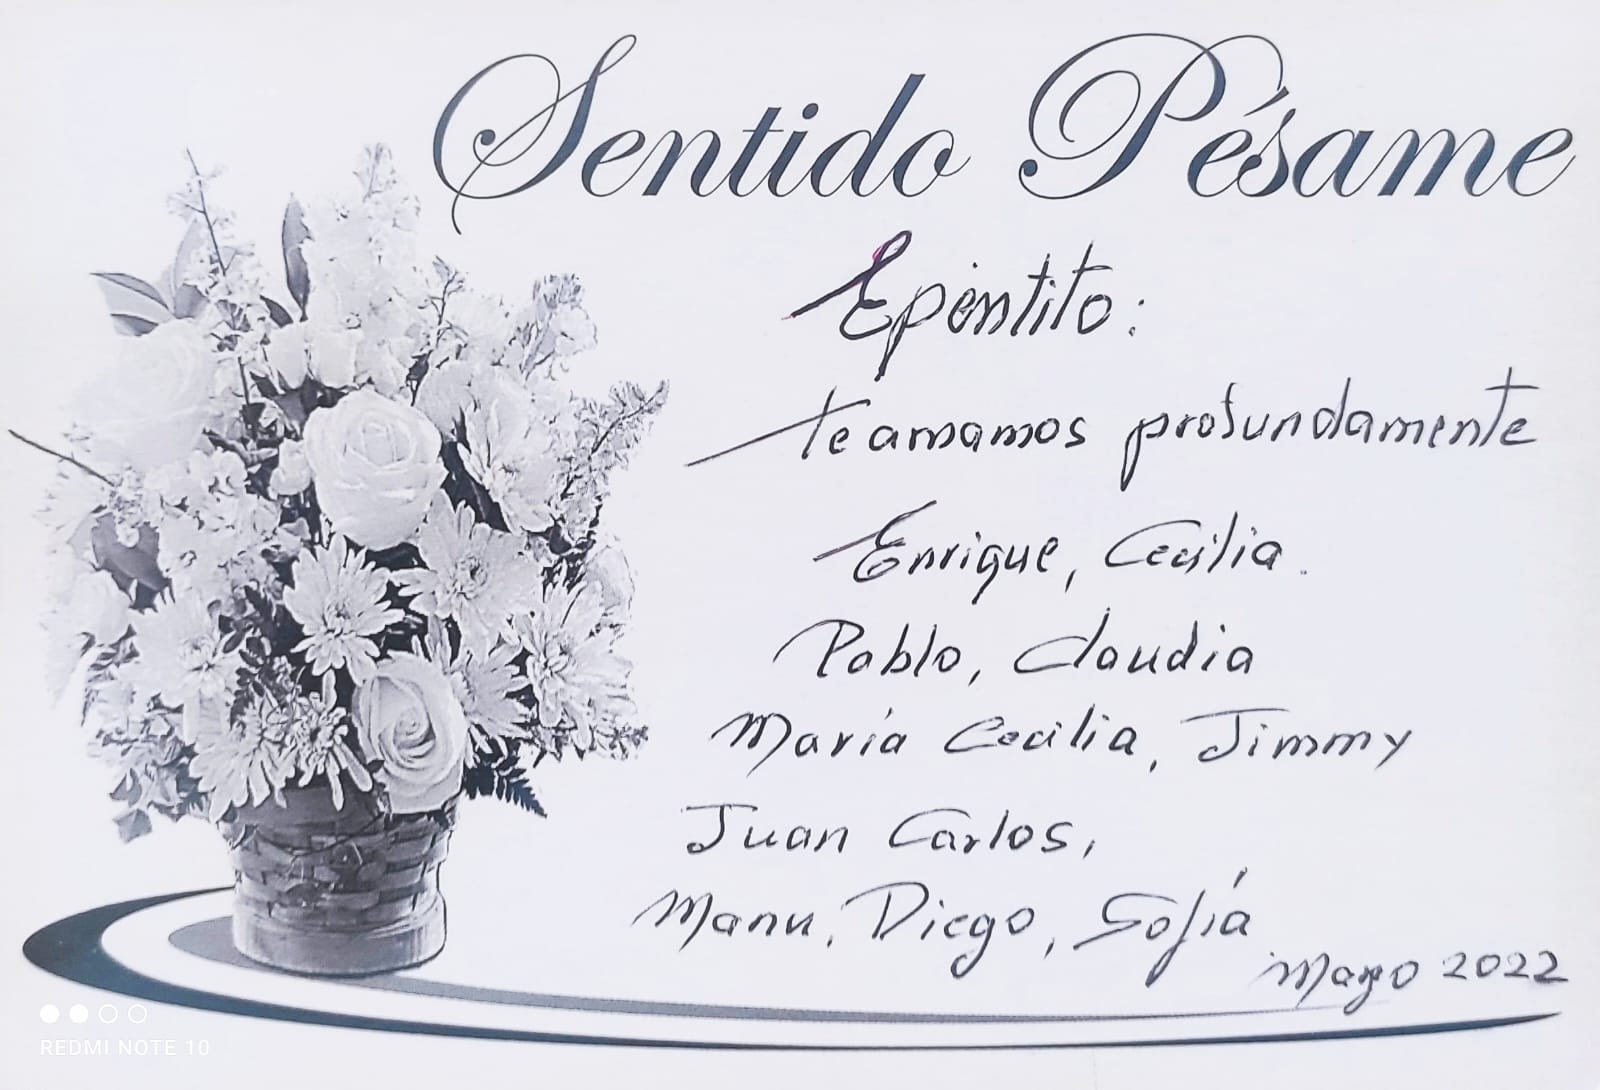 Sentido Pésame
Epentito:
te amamos profundamente
Enrique, Cecilia.
Pablo, Claudia
María Cecilia, Jimmy
Juan Carlos,
Manu, Diego, Sofía
Marzo 2022
REDMI NOTE 10